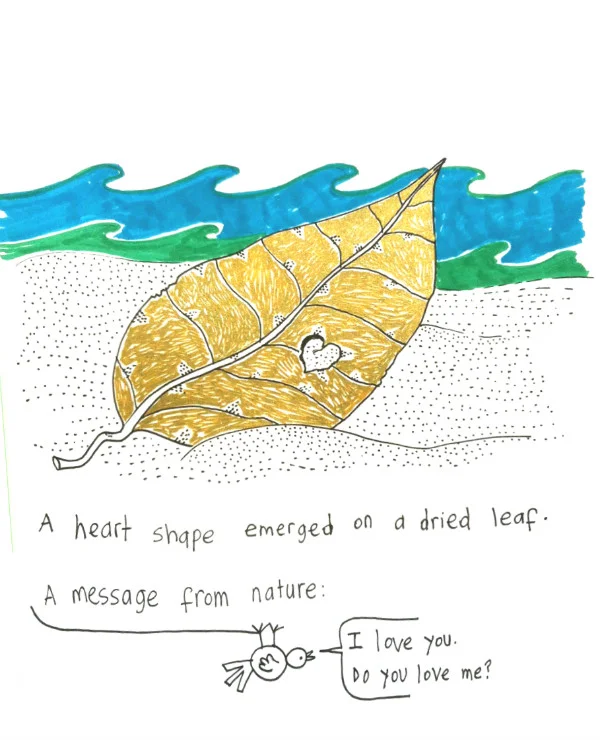 A heart shape emerged on a dried leaf.
A message from nature:
I love you.
Do you love me?